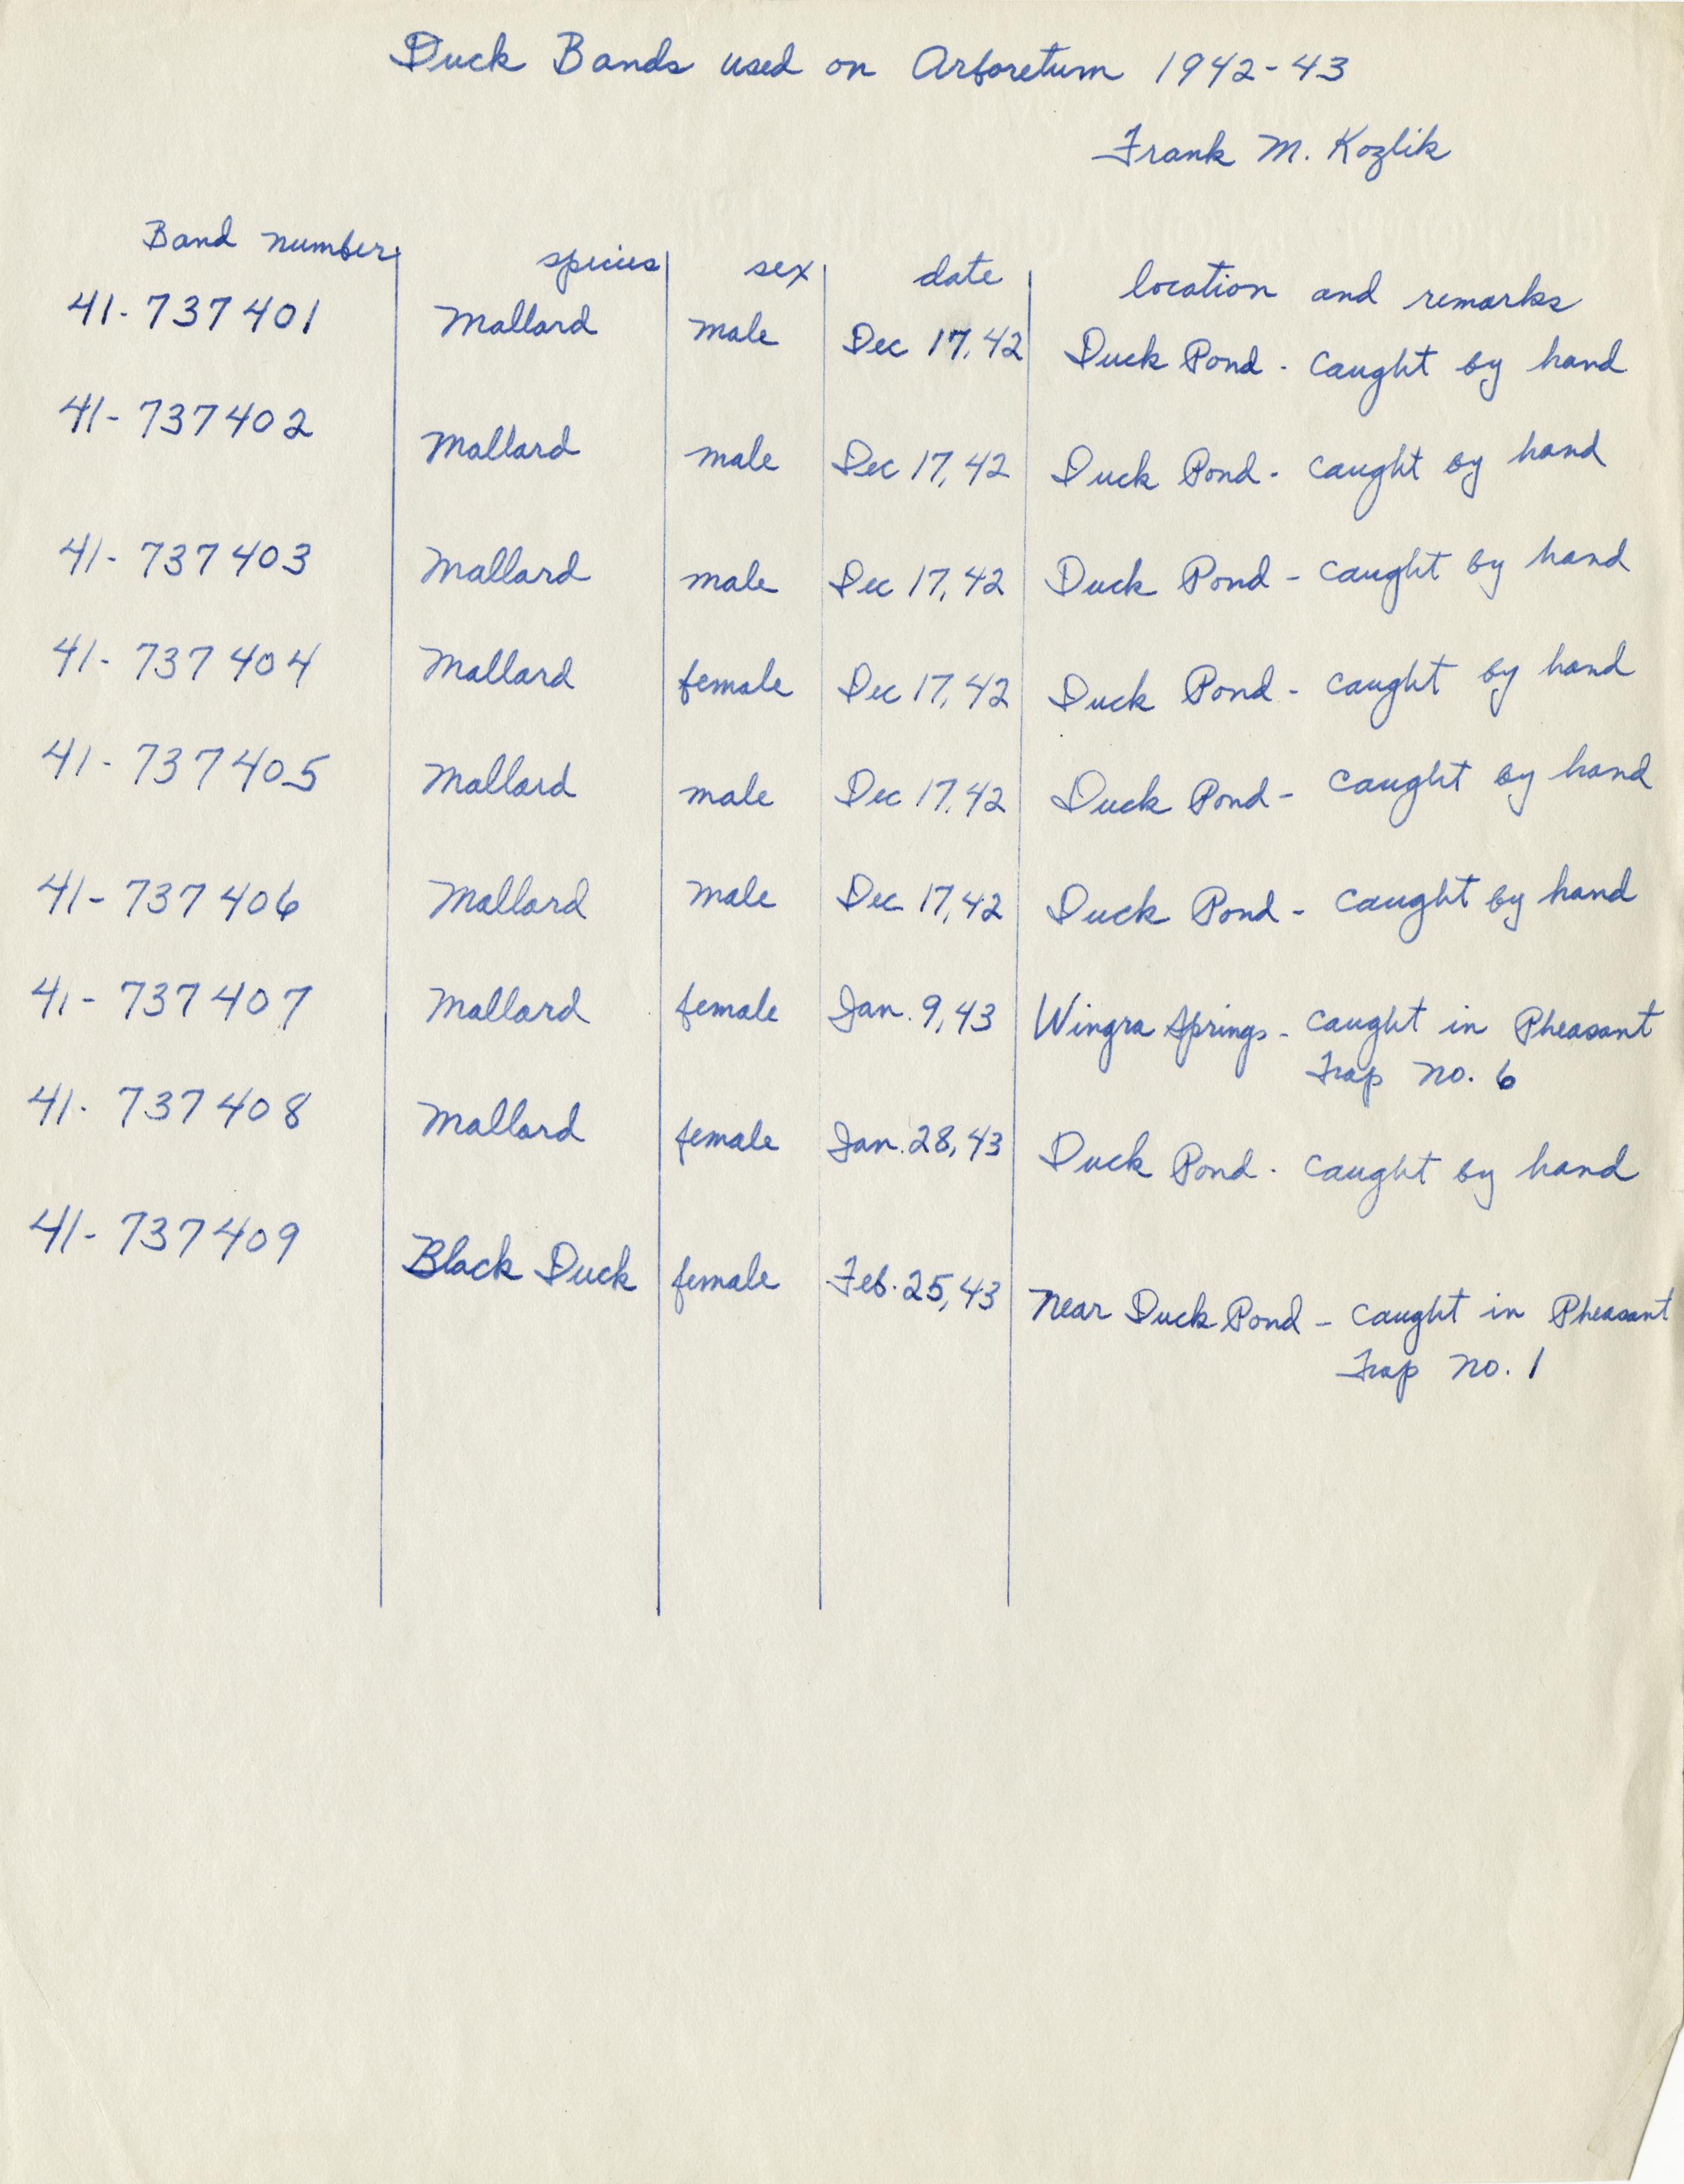 Duck Bands used on Arboretum 1942-43
Frank M. Kozlik
Band number species sex date location and remarks
41-737401 Mallard male Dec 17, 42 Duck Pond - caught by hand
41-737402 Mallard male Dec 17, 42 Duck Pond - caught by hand
41-737403 Mallard male Dec 17, 42 Duck Pond - caught by hand
41-737404 Mallard female Dec 17, 42 Duck Pond - caught by hand
41-737405 Mallard male Dec 17, 42 Duck Pond - caught by hand
41-737406 Mallard male Dec 17, 42 Duck Pond - caught by hand
41-737407 Mallard female Jan. 9, 43 Wingra Springs - caught in Pheasant
Trap No. 6
41-737408 Mallard female Jan. 28, 43 Duck Pond - caught by hand
41-737409 Black Duck female Feb. 25, 43 Near Duck Pond - caught in Pheasant
Trap No. 1